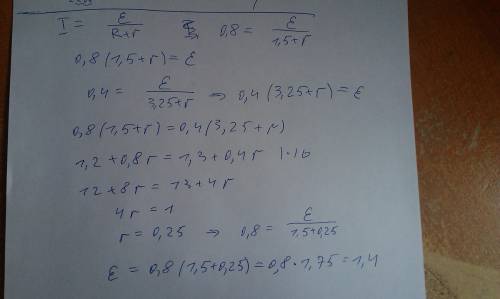 I = ε / R+r    0,8 = ε / 1,5+r
0,8 (1,5+r) = ε
0,4 = ε / 3,25+r ⇒ 0,4 (3,25+r) = ε
0,8 (1,5+r) = 0,4 (3,25+r)
1,2 + 0,8r = 1,3 + 0,4r |·10
12 + 8r = 13 + 4r
4r = 1
r = 0,25 ⇒ 0,8 = ε / 1,5+0,25
ε = 0,8 (1,5+0,25) = 0,8 · 1,75 = 1,4